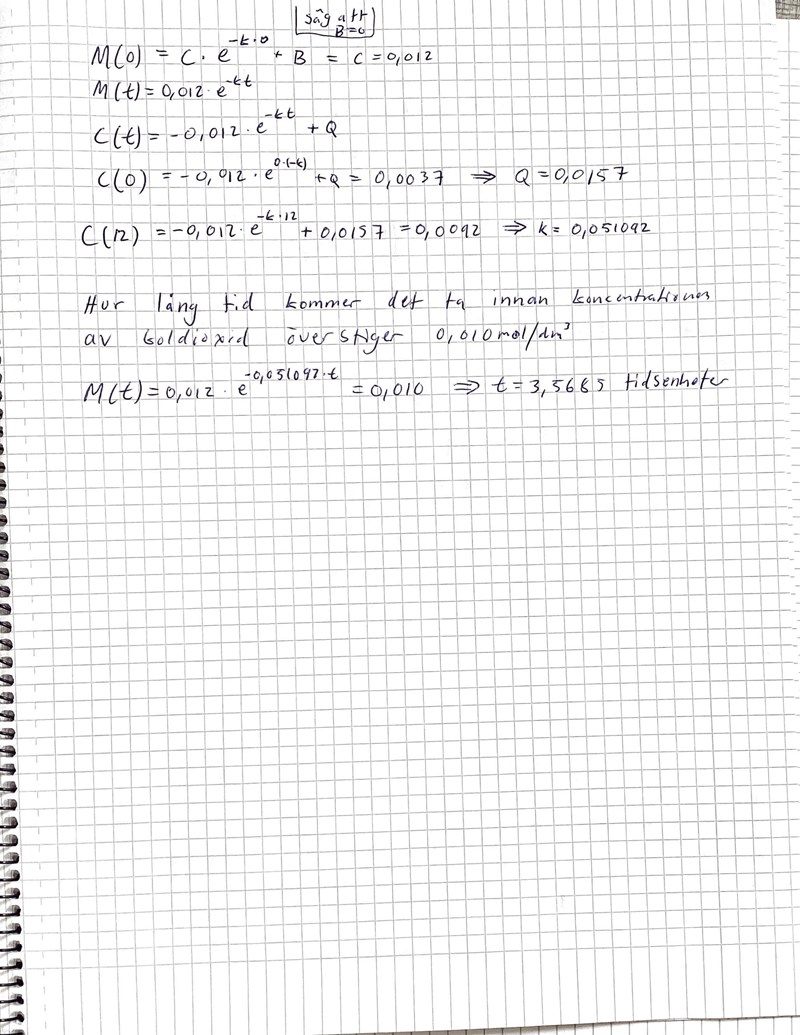 såg att
B=0
M(0) = C · e^(-k·0) + B = C = 0,012
M(t) = 0,012 · e^(-kt)
C(t) = -0,012 · e^(-kt) + Q
C(0) = -0,012 · e^(0·(-k)) + Q = 0,0037 ⇒ Q = 0,0157
C(12) = -0,012 · e^(-k·12) + 0,0157 = 0,0092 ⇒ k = 0,051092
Hur lång tid kommer det ta innan koncentrationen
av koldioxid överstiger 0,010 mol/dm³
M(t) = 0,012 · e^(-0,051092·t) = 0,010 ⇒ t = 3,5685 tidsenheter